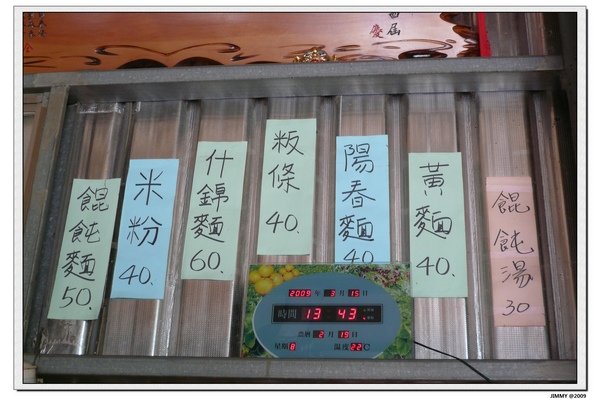 餛飩麵 50.
米粉 40.
什錦麵 60.
粄條 40.
陽春麵 40
黃麵 40.
餛飩湯 30
2009年 3月 15日
時間 13 43
農曆 2月 19日
星期 8 溫度 22℃
JIMMY @2009